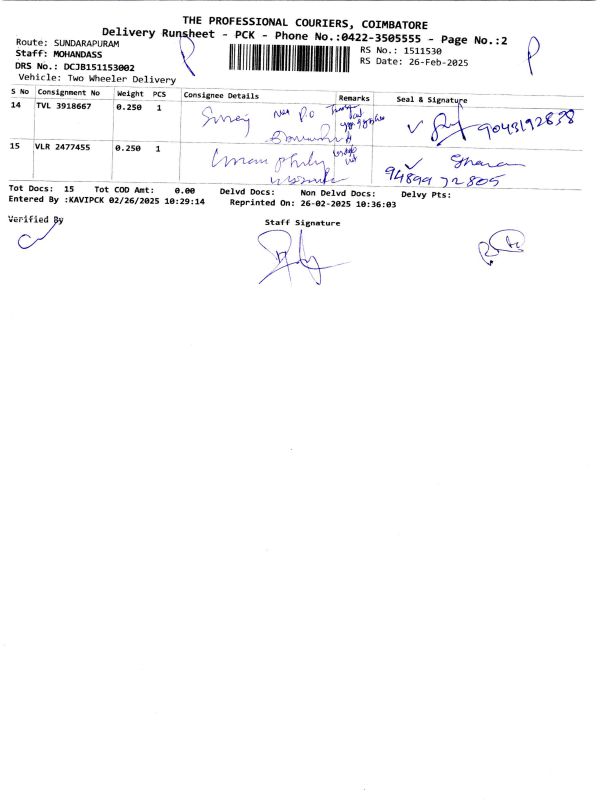 THE PROFESSIONAL COURIERS, COIMBATORE
Delivery Runsheet - PCK - Phone No.:0422-3505555 - Page No.:2
Route: SUNDARAPURAM
Staff: MOHANDASS
DRS No.: DCJB151153002
Vehicle: Two Wheeler Delivery
RS No.: 1511530
RS Date: 26-Feb-2025
S No Consignment No Weight PCS Consignee Details Remarks Seal & Signature
14 TVL 3918667 0.250 1 9043192838
15 VLR 2477455 0.250 1 94899 72805
Tot Docs: 15 Tot COD Amt: 0.00 Delvd Docs: Non Delvd Docs: Delvy Pts:
Entered By :KAVIPCK 02/26/2025 10:29:14 Reprinted On: 26-02-2025 10:36:03
Verified By
Staff Signature